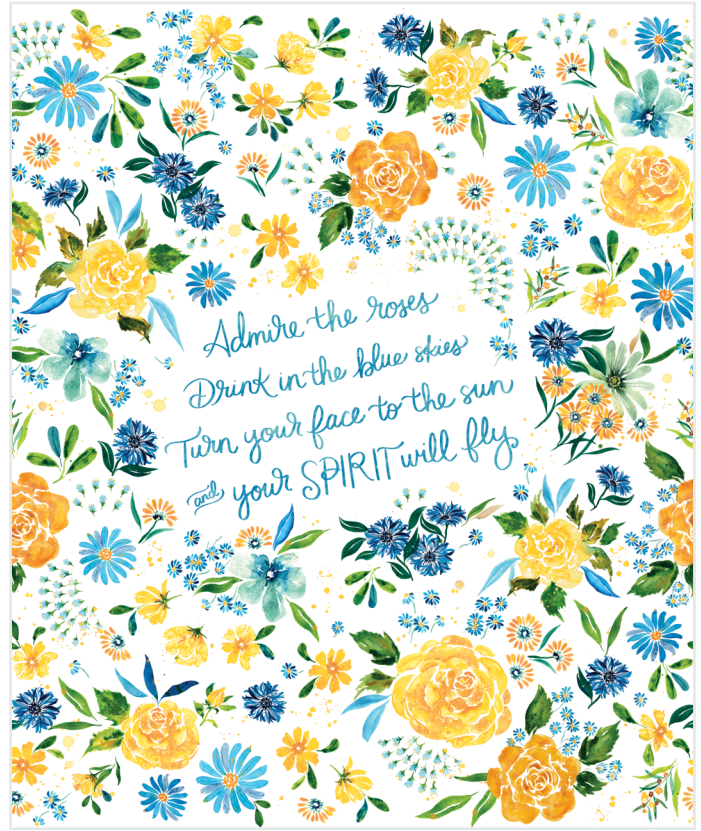 Admire the roses
Drink in the blue skies
Turn your face to the sun
and your SPIRIT will fly.